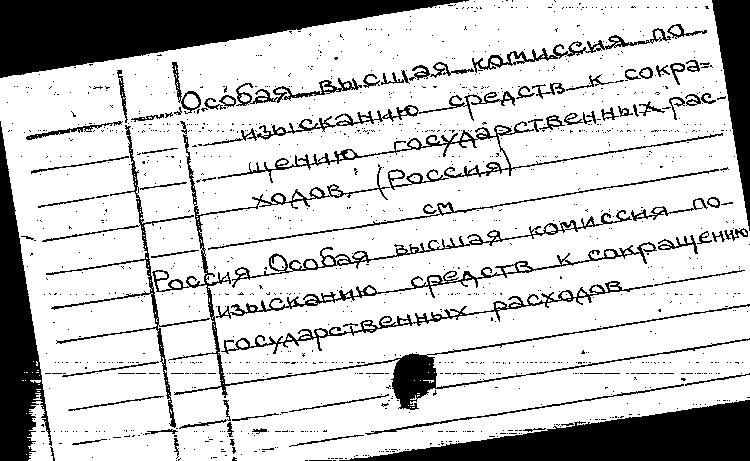 Особая высшая комиссия по
изысканию средств к сокра=
щению государственных рас-
ходов. (Россия)
см
Россия. Особая высшая комиссия по
изысканию средств к сокращению
государственных расходов.